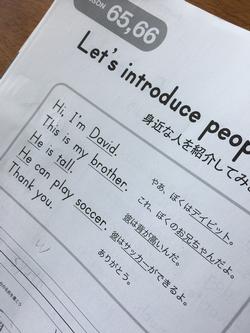 65,66
Let's introduce peop
身近な人を紹介してみ
Hi, I'm David.
This is my brother.
He is tall.
He can play soccer.
Thank you.
やあ、ぼくはデイビット。
これ、ぼくのお兄ちゃんだよ。
彼は背が高いんだ。
彼はサッカーができるよ。
ありがとう。